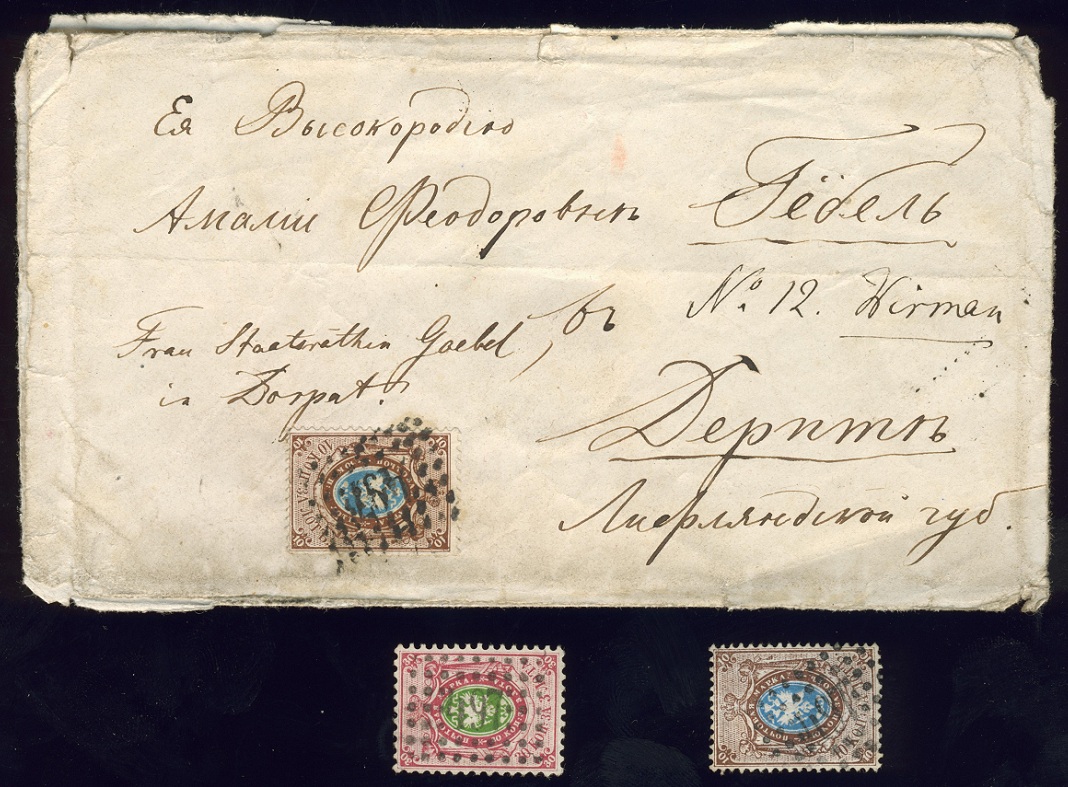 Ея Высокородію
Амаліи Феодоровнѣ Гёбель
Frau Staatsräthin Goebel
in Dorpat.
въ
№ 12. Wirman
Дерптѣ
Лифляндской губ.
10 10
10 10
30
30 30
10
10 10